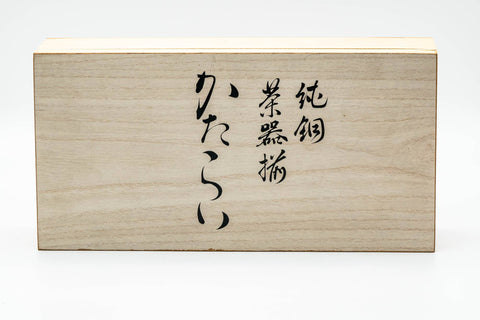 純銅
茶器揃
かたらい